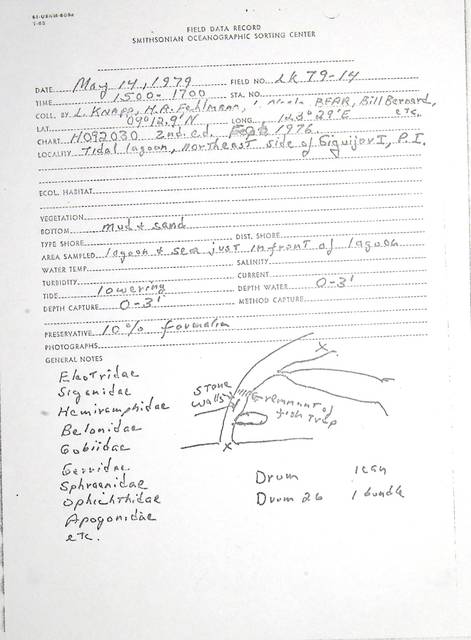 FIELD DATA RECORD
SMITHSONIAN OCEANOGRAPHIC SORTING CENTER
DATE May 14, 1979 FIELD NO. LK 79-14
TIME 1500-1700 STA. NO.
COLL. BY L. Knapp, H.R. Fehlmann, BFAR, Bill Bernard, etc.
LAT. 09°12.9'N LONG. 123°29'E
CHART H092030 2nd ed. 1976
LOCALITY Tidal lagoon, northeast side of Siquijor I, P.I.
ECOL. HABITAT
VEGETATION
BOTTOM mud & sand
TYPE SHORE DIST. SHORE
AREA SAMPLED lagoon & sea just in front of lagoon
WATER TEMP. SALINITY
TURBIDITY CURRENT
TIDE lowering DEPTH WATER 0-3'
DEPTH CAPTURE 0-3' METHOD CAPTURE
PRESERVATIVE 10% formalin
PHOTOGRAPHS
GENERAL NOTES
Eleotridae
Siganidae
Hemiramphidae
Belonidae
Gobiidae
Gerridae
Sphraenidae
Ophichthidae
Apogonidae
etc.
Stone walls
remnant of fish trap
X
X
Drum 1 can
Drum 26 1 bundle